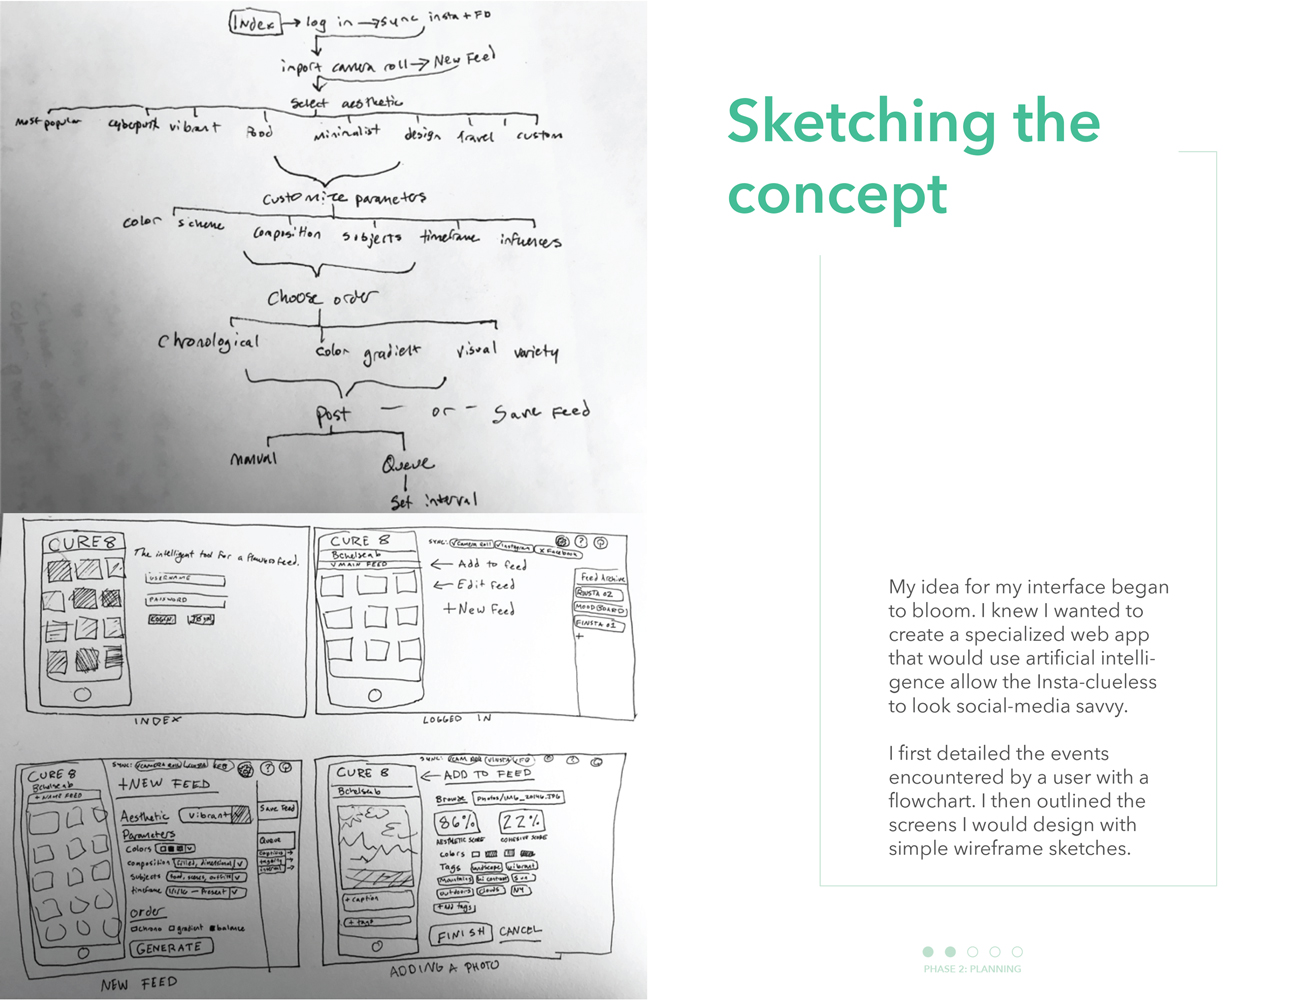 Index → log in → sync insta + FB
import camera roll → New Feed
Select aesthetic
most popular cyberpunk vibrant food minimalist design travel custom
Customize parameters
color scheme composition subjects timeframe influencers
Choose order
Chronological color gradient visual variety
Post — or — Save Feed
manual Queue
Set interval
CURE8
The intelligent tool for a flawless feed.
USERNAME
PASSWORD
LOGIN
INDEX
CURE 8
Bchelseab
V MAIN FEED
SYNC: √Camera roll √instagram X Facebook
?
← Add to feed
← Edit feed
+ New Feed
Feed Archive
RINSTA 02
MOODBOARD
FINSTA 01
+
LOGGED IN
CURE 8
Bchelseab
+ NAME FEED
SYNC:
?
+NEW FEED
Aesthetic vibrant
Parameters
Colors
composition filled, dimensional V
Subjects
timeframe 1/1/16 – Present V
order
chrono gradient balance
GENERATE
Save Feed
Queue
NEW FEED
CURE 8
Bchelseab
+ caption
+ tags
SYNC:
← ADD TO FEED
Browse photos/IMG_20146.JPG
86% 22%
AESTHETIC SCORE COHESIVE SCORE
Colors
Tags landscape vibrant
Mountains
outdoors clouds NY
+ add tags
FINISH CANCEL
ADDING A PHOTO
Sketching the
concept
My idea for my interface began
to bloom. I knew I wanted to
create a specialized web app
that would use artificial intelli-
gence allow the Insta-clueless
to look social-media savvy.
I first detailed the events
encountered by a user with a
flowchart. I then outlined the
screens I would design with
simple wireframe sketches.
PHASE 2: PLANNING